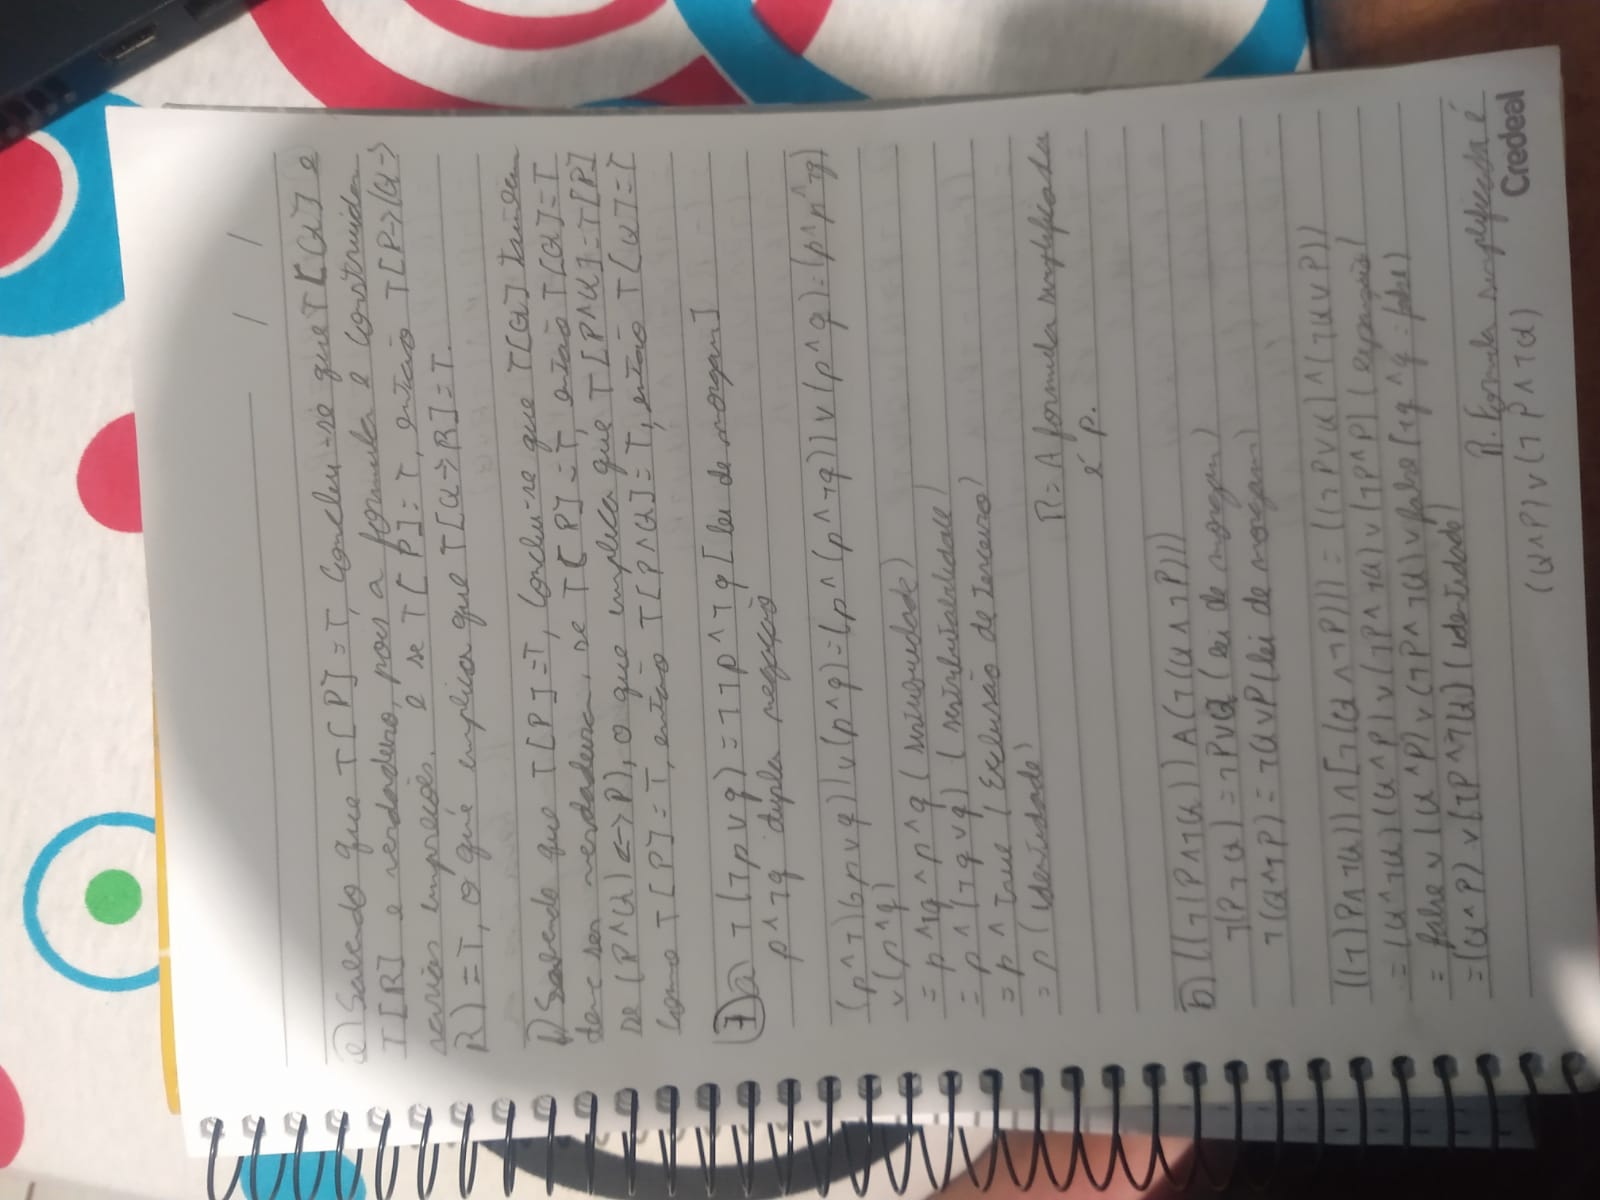 / /
e) Sabendo que T[P]=T, Conclui-se que T[Q] e
T[R] é verdadeiro, pois a formula é construida
varias impreciões. e se T[P]=T, então T[P->(Q->
R)=T, o que implica que T[Q->R]=T.
f) Sabendo que T[P]=T, Conclui-se que T[Q] também
deve ser verdadeira. se T[P]=T, então T[Q]=T
se (P∧Q)<->P), o que implica que T[P∧Q]=T[P]
como T[P]=T, então T[P∧Q]=T, então T[Q]=T
7) a ¬(¬p∨q)=¬¬p∧¬q [lei de morgan]
p∧¬q dupla negação
(p∧¬)(¬p∨q))∨(p∧q)=(p∧(p∧¬q))∨(p∧q)=(p∧p∧¬q)
∨(p∧q)
=p∧¬q∧p∧q
=p∧(¬q∨q)
=p∧True (Exclusão de terceiro)
=p (identidade)
R=A formula simplificada
é p.
b) ((¬(P∧¬Q))∧(¬(Q∧¬P)))
¬(P¬Q)=¬P∨Q (lei de morgan)
¬(Q∧¬P)=¬Q∨P (lei de morgan)
((¬)P∧¬Q))∧[¬(Q∧¬P)))=((¬P∨Q)∧(¬Q∨P))
=(Q∧¬Q)(Q∧P)∨(¬P∧¬Q)∨(¬P∧P) (expansão)
=false∨(Q∧P)∨(¬P∧¬Q)∨false [¬q∧q=false)
=(Q∧P)∨(¬P∧¬Q) (identidade)
R. Formula simplificada é
(Q∧P)∨(¬P∧¬Q)
Credeal